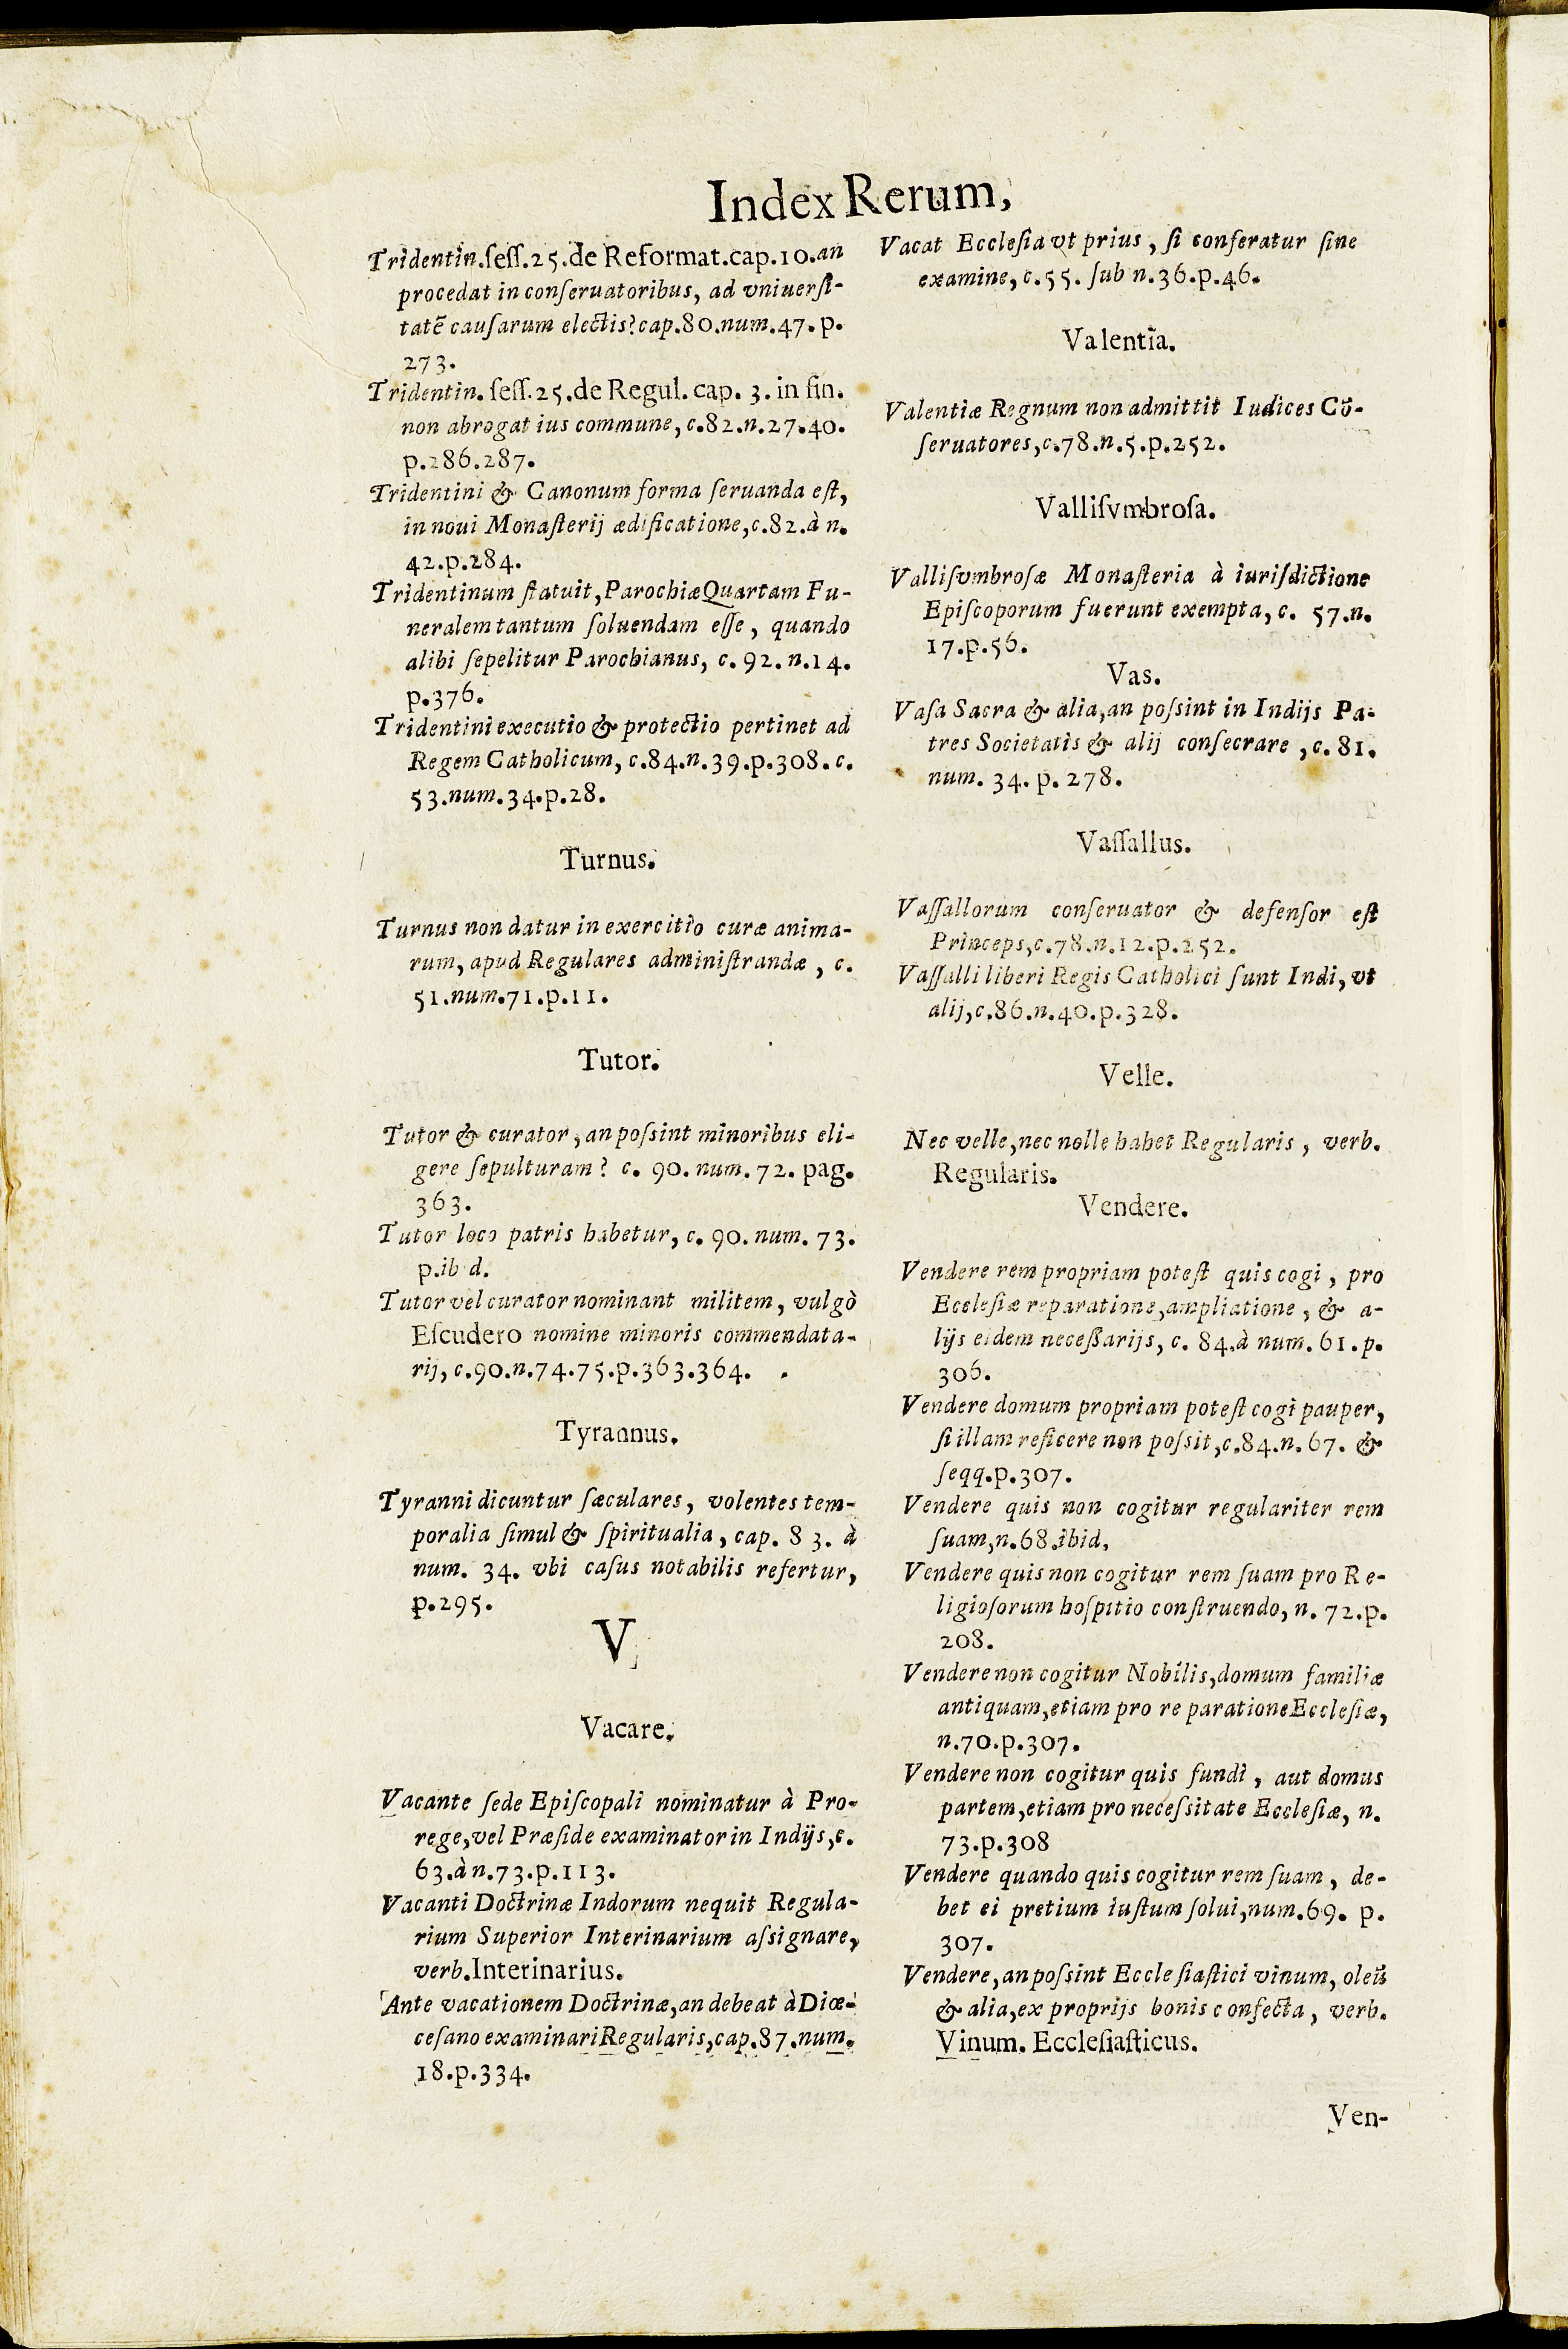 Index Rerum,
Tridentin.ſeſſ.25.de Reformat.cap.10.an
procedat in conſeruatoribus, ad vniuerſi-
tatẽ cauſarum electis?cap.80.num.47.p.
273.
Tridentin.ſeſſ.25.de Regul.cap. 3. in fin.
non abrogat ius commune, c.82.n.27.40.
p.286.287.
Tridentini & Canonum forma ſeruanda eſt,
in noui Monaſterij ædificatione,c.82.à n.
42.p.284.
Tridentinum ſtatuit,ParochiæQuartam Fu-
neralem tantum ſoluendam eſſe, quando
alibi ſepelitur Parochianus, c. 92. n.14.
p.376.
Tridentini executio & protectio pertinet ad
Regem Catholicum, c.84.n.39.p.308.c.
53.num.34.p.28.
Turnus.
Turnus non datur in exercitio curæ anima-
rum, apud Regulares adminiſtrandæ, c.
51.num.71.p.11.
Tutor.
Tutor & curator, an poſsint minoribus eli-
gere ſepulturam? c. 90. num. 72. pag.
363.
Tutor loco patris habetur, c. 90. num. 73.
p.ib d.
Tutor vel curator nominant militem, vulgò
Eſcudero nomine minoris commendata-
rij, c.90.n.74.75.p.363.364.
Tyrannus.
Tyranni dicuntur ſæculares, volentes tem-
poralia ſimul & ſpiritualia, cap. 83. à
num. 34. vbi caſus notabilis refertur,
p.295.
V
Vacare.
Vacante ſede Epiſcopali nominatur à Pro-
rege,vel Præſide examinator in Indijs,c.
63.à n.73.p.113.
Vacanti Doctrinæ Indorum nequit Regula-
rium Superior Interinarium aſsignare,
verb.Interinarius.
Ante vacationem Doctrinæ,an debeat à Diœ-
ceſano examinari Regularis,cap.87.num.
18.p.334.
Vacat Eccleſia vt prius, ſi conferatur ſine
examine, c.55. ſub n.36.p.46.
Valentia.
Valentiæ Regnum non admittit Iudices Cõ-
ſeruatores,c.78.n.5.p.252.
Valliſvmbroſa.
Valliſvmbroſæ Monaſteria à iuriſdictione
Epiſcoporum fuerunt exempta, c. 57.n.
17.p.56.
Vas.
Vaſa Sacra & alia,an poſsint in Indijs Pa-
tres Societatis & alij conſecrare, c. 81.
num. 34. p. 278.
Vaſſallus.
Vaſſallorum conſeruator & defenſor eſt
Princeps,c.78.n.12.p.252.
Vaſſalli liberi Regis Catholici ſunt Indi, vt
alij,c.86.n.40.p.328.
Velle.
Nec velle,nec nolle habet Regularis, verb.
Regularis.
Vendere.
Vendere rem propriam poteſt quis cogi, pro
Eccleſiæ reparatione,ampliatione, & a-
lijs eidem neceſſarijs, c. 84.à num. 61.p.
306.
Vendere domum propriam poteſt cogi pauper,
ſi illam reficere non poſsit,c.84.n.67. &
ſeqq.p.307.
Vendere quis non cogitur regulariter rem
ſuam,n.68.ibid.
Vendere quis non cogitur rem ſuam pro Re-
ligioſorum hoſpitio conſtruendo, n. 72.p.
208.
Vendere non cogitur Nobilis,domum familiæ
antiquam,etiam pro re paratione Eccleſiæ,
n.70.p.307.
Vendere non cogitur quis fundi, aut domus
partem,etiam pro neceſsitate Eccleſiæ, n.
73.p.308
Vendere quando quis cogitur rem ſuam, de-
bet ei pretium iuſtum ſolui,num.69. p.
307.
Vendere,an poſsint Eccleſiaſtici vinum, oleũ
& alia,ex proprijs bonis confecta, verb.
Vinum. Eccleſiaſticus.
Ven-